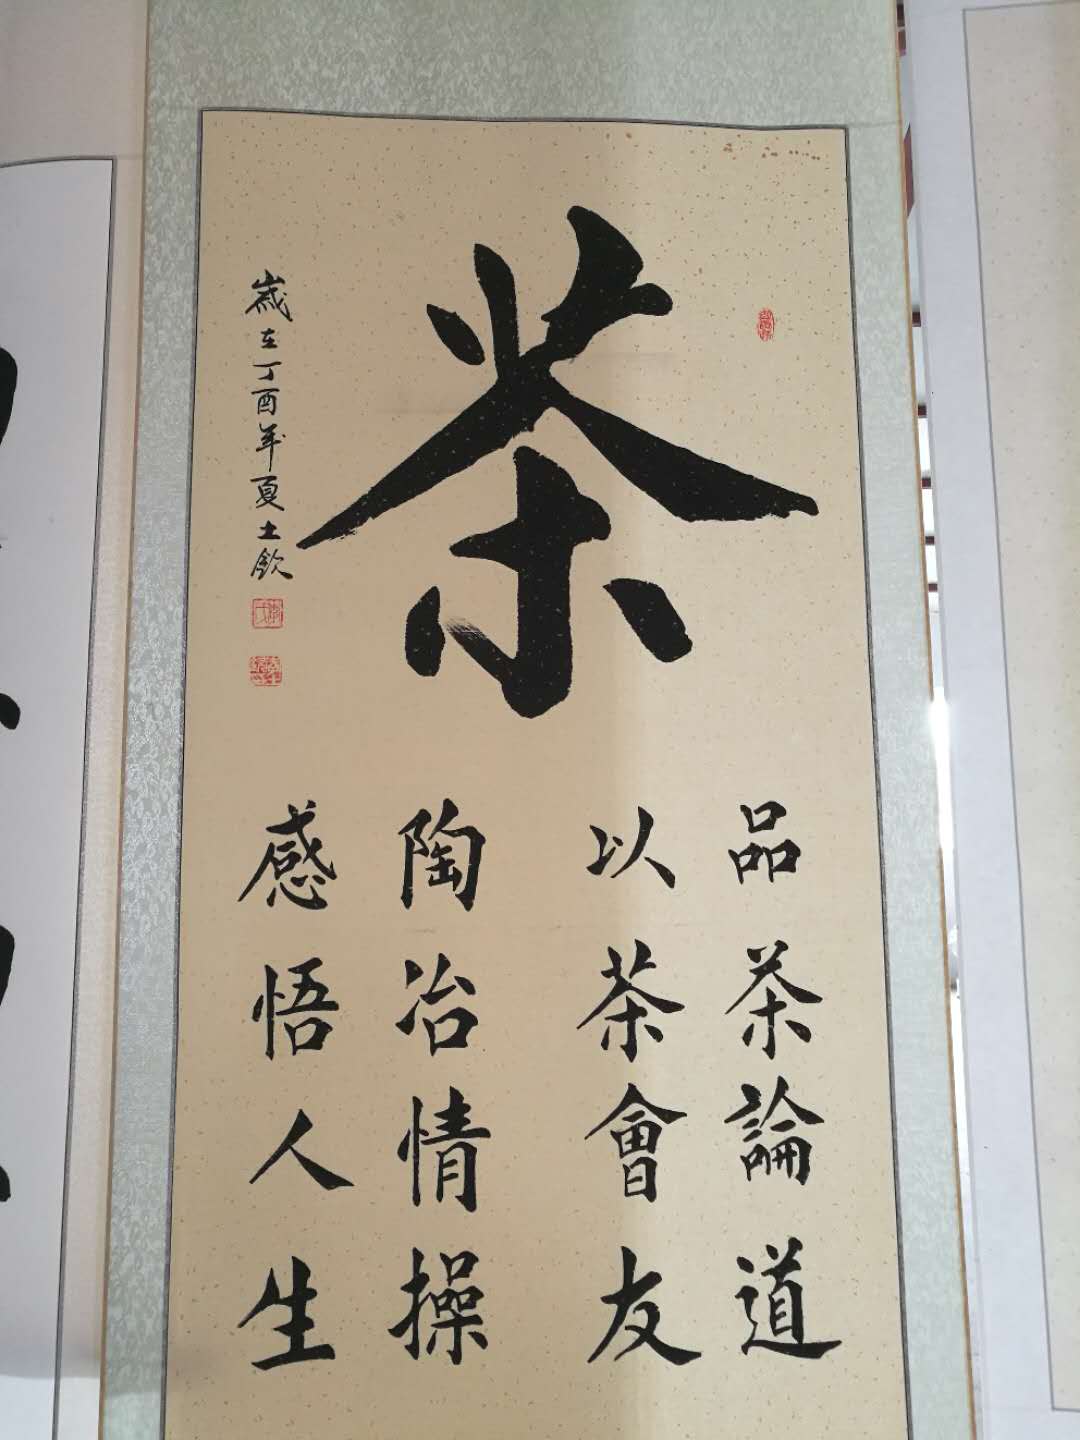 茶
品茶論道
以茶會友
陶冶情操
感悟人生
歲在丁酉年夏士欽